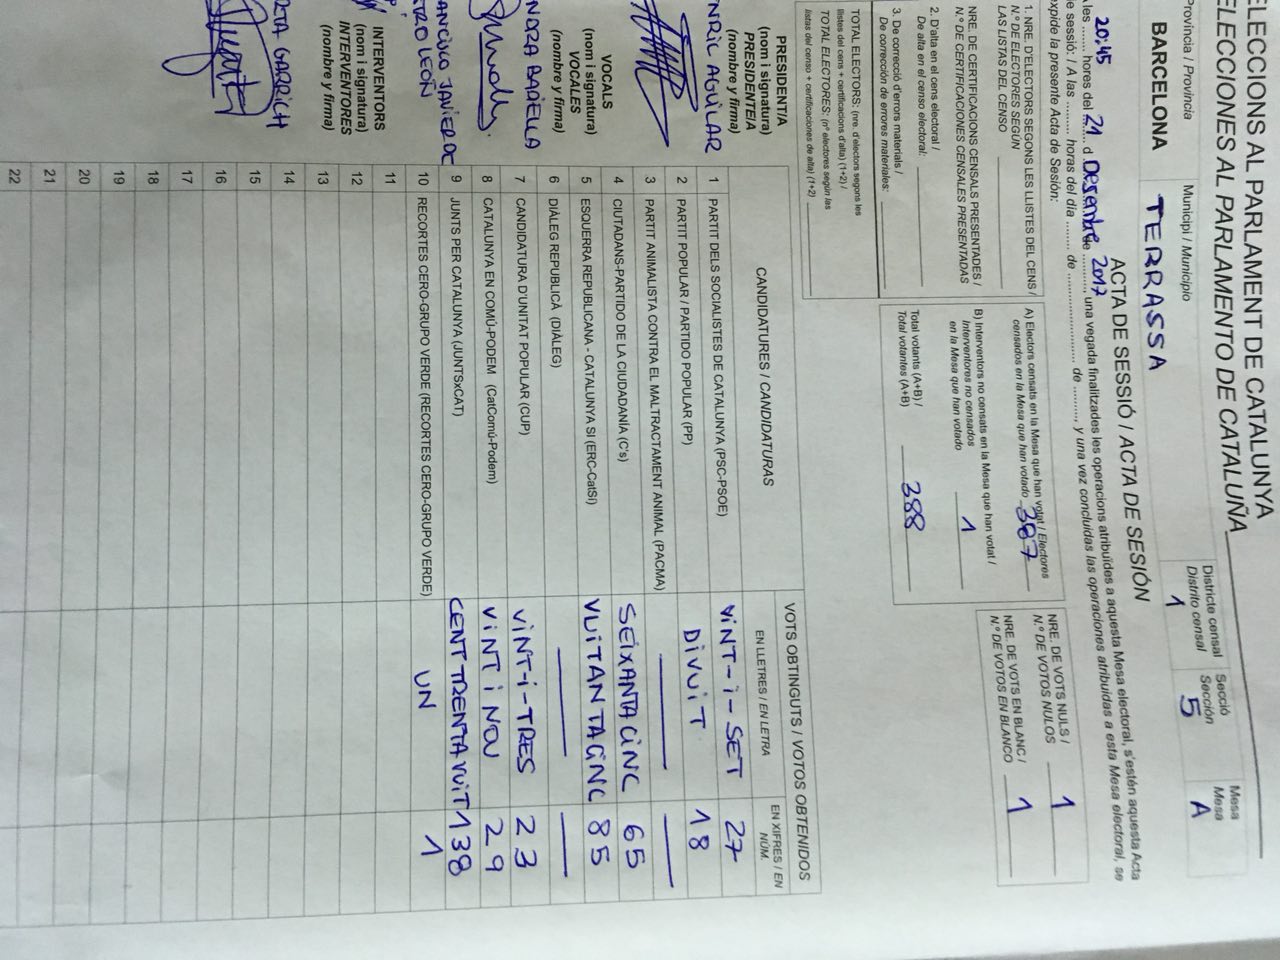 ELECCIONS AL PARLAMENT DE CATALUNYA
ELECCIONES AL PARLAMENTO DE CATALUÑA
Districte censal
Distrito censal
1
Secció
Sección
5
Mesa
Mesa
A
Província / Provincia
BARCELONA
Municipi / Municipio
TERRASSA
ACTA DE SESSIÓ / ACTA DE SESIÓN
A les 20:45 hores del 21 d Desembre de 2017, una vegada finalitzades les operacions atribuïdes a aquesta Mesa electoral, s'estén aquesta Acta
de sessió: / A las .......... horas del día ........ de .................... de ........, y una vez concluidas las operaciones atribuidas a esta Mesa electoral, se
expide la presente Acta de Sesión:
1. NRE. D'ELECTORS SEGONS LES LLISTES DEL CENS /
N.º DE ELECTORES SEGÚN
LAS LISTAS DEL CENSO
NRE. DE CERTIFICACIONS CENSALS PRESENTADES /
N.º DE CERTIFICACIONES CENSALES PRESENTADAS
2. D'alta en el cens electoral /
De alta en el censo electoral:
3. De correcció d'errors materials /
De corrección de errores materiales:
TOTAL ELECTORS: (nre. d'electors segons les
llistes del cens + certificacions d'alta) (1+2) /
TOTAL ELECTORES: (nº electores según las
listas del censo + certificaciones de alta) (1+2)
A) Electors censats en la Mesa que han votat / Electores
censados en la Mesa que han votado 387
B) Interventors no censats en la Mesa que han votat /
Interventores no censados
en la Mesa que han votado 1
Total votants (A+B) /
Total votantes (A+B) 388
NRE. DE VOTS NULS /
N.º DE VOTOS NULOS 1
NRE. DE VOTS EN BLANC /
N.º DE VOTOS EN BLANCO 1
PRESIDENT/A
(nom i signatura)
PRESIDENTE/A
(nombre y firma)
ENRIC AGUILAR
VOCALS
(nom i signatura)
VOCALES
(nombre y firma)
FRANCISCO JAVIER DE
INTERVENTORS
(nom i signatura)
INTERVENTORES
(nombre y firma)
GARRICH
CANDIDATURES / CANDIDATURAS
VOTS OBTINGUTS / VOTOS OBTENIDOS
EN LLETRES / EN LETRA
EN XIFRES / EN NÚM.
1 PARTIT DELS SOCIALISTES DE CATALUNYA (PSC-PSOE) VINT-I-SET 27
2 PARTIT POPULAR / PARTIDO POPULAR (PP) DIVUIT 18
3 PARTIT ANIMALISTA CONTRA EL MALTRACTAMENT ANIMAL (PACMA)
4 CIUTADANS-PARTIDO DE LA CIUDADANÍA (C's) SEIXANTA CINC 65
5 ESQUERRA REPUBLICANA - CATALUNYA SÍ (ERC-CatSí) VUITANTA CINC 85
6 DIÀLEG REPUBLICÀ (DIÀLEG)
7 CANDIDATURA D'UNITAT POPULAR (CUP) VINT-I-TRES 23
8 CATALUNYA EN COMÚ-PODEM (CatComú-Podem) VINT I NOU 29
9 JUNTS PER CATALUNYA (JUNTSxCAT) CENT TRENTA VUIT 138
10 RECORTES CERO-GRUPO VERDE (RECORTES CERO-GRUPO VERDE) UN 1
11
12
13
14
15
16
17
18
19
20
21
22